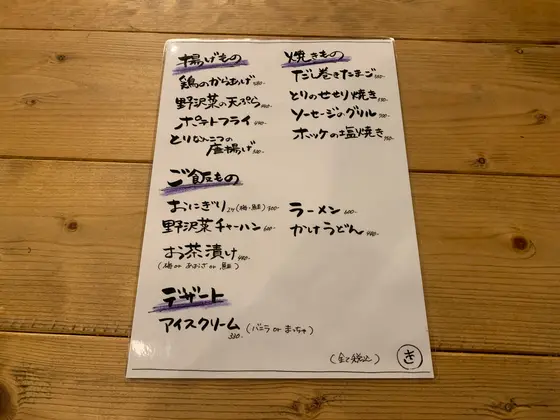 揚げもの
鶏のからあげ
野沢菜の天ぷら
ポテトフライ
とりなんこつの
唐揚げ
焼きもの
だし巻きたまご
とりのせせり焼き
ソーセージのグリル
ホッケの塩焼き
ご飯もの
おにぎり 2ケ(梅・鮭) 300-
野沢菜チャーハン 600-
お茶漬け
(梅 or あおさ or 鮭)
ラーメン 600-
かけうどん
デザート
アイスクリーム (バニラ or まっちゃ)
(全て税込)
き